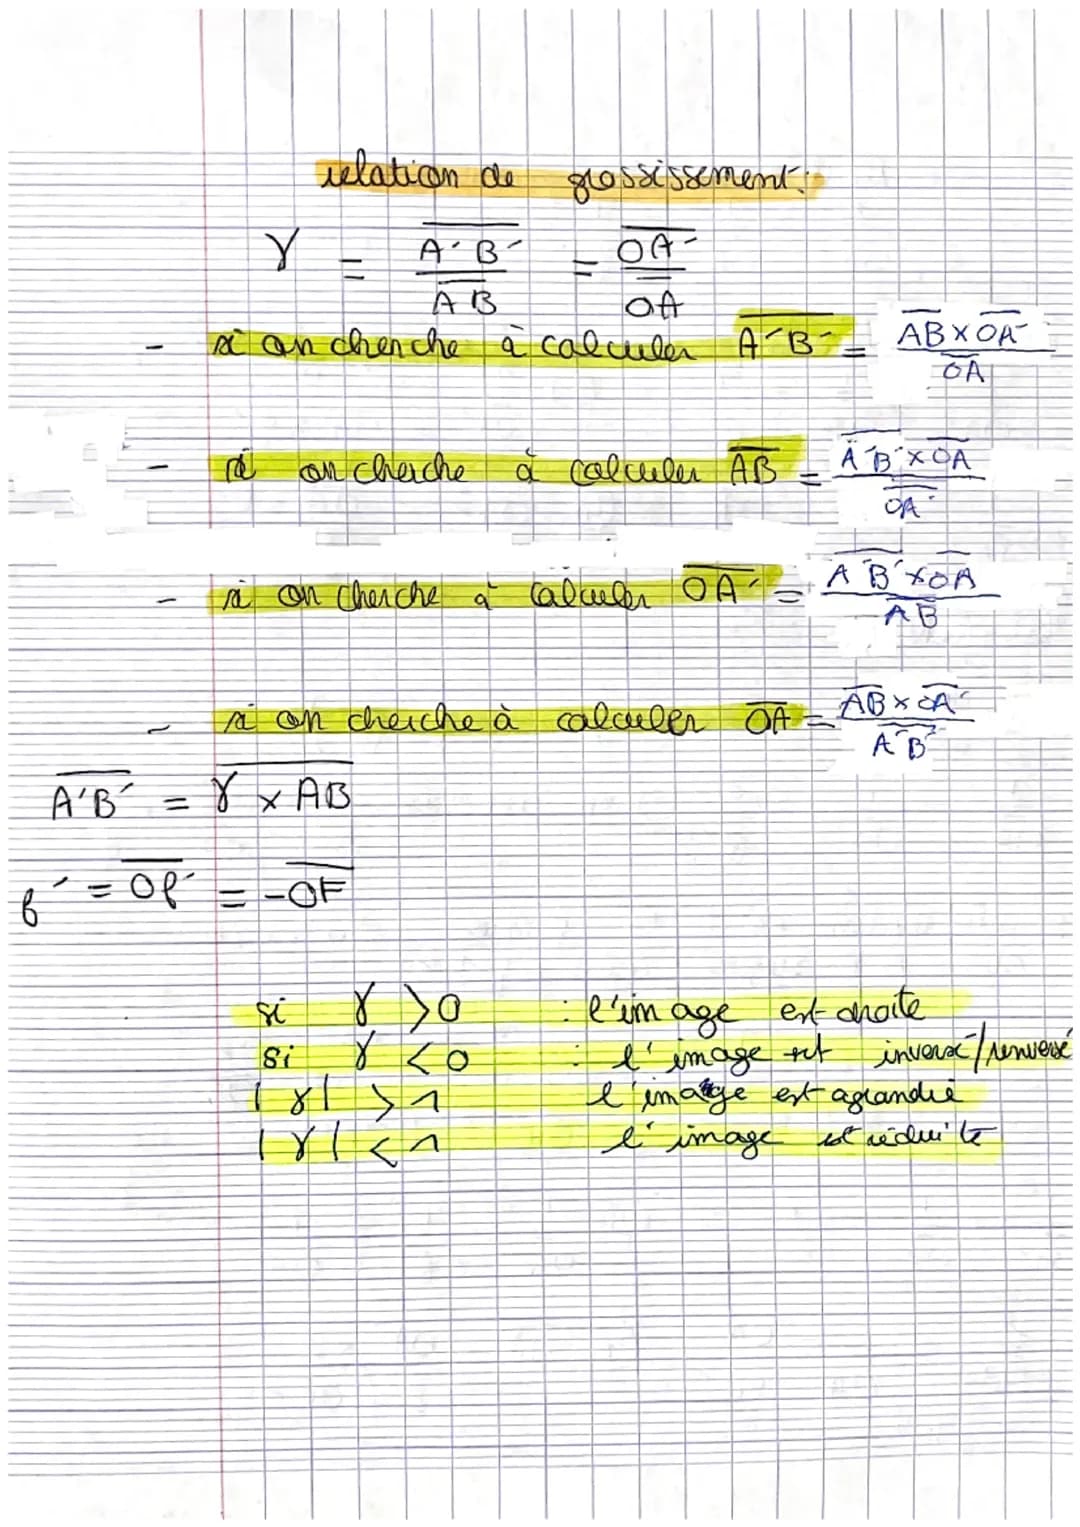 relation de grossissement:
γ = A'B' / AB = OA' / OA
- si on cherche à calculer A'B' = AB × OA' / OA
- si on cherche à calculer AB = A'B' × OA / OA'
- si on cherche à calculer OA' = A'B' × OA / AB
- si on cherche à calculer OA = AB × OA' / A'B'
A'B' = γ × AB
f' = OF' = -OF
si γ > 0 : l'image est droite
si γ < 0 : l'image est inversé/renversé
|γ| > 1 l'image est agrandie
|γ| < 1 l'image est réduite